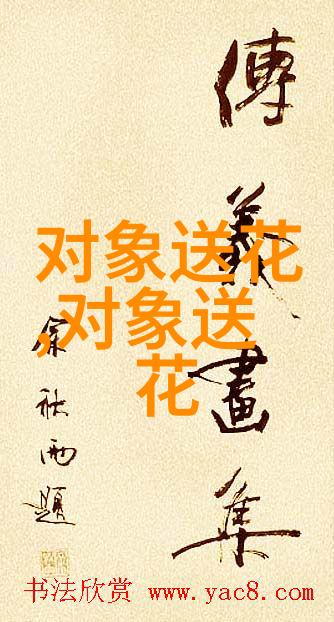 傅義畫集
余秋雨題
对象送花
,对象送
花
书法欣赏 www.yac8.com